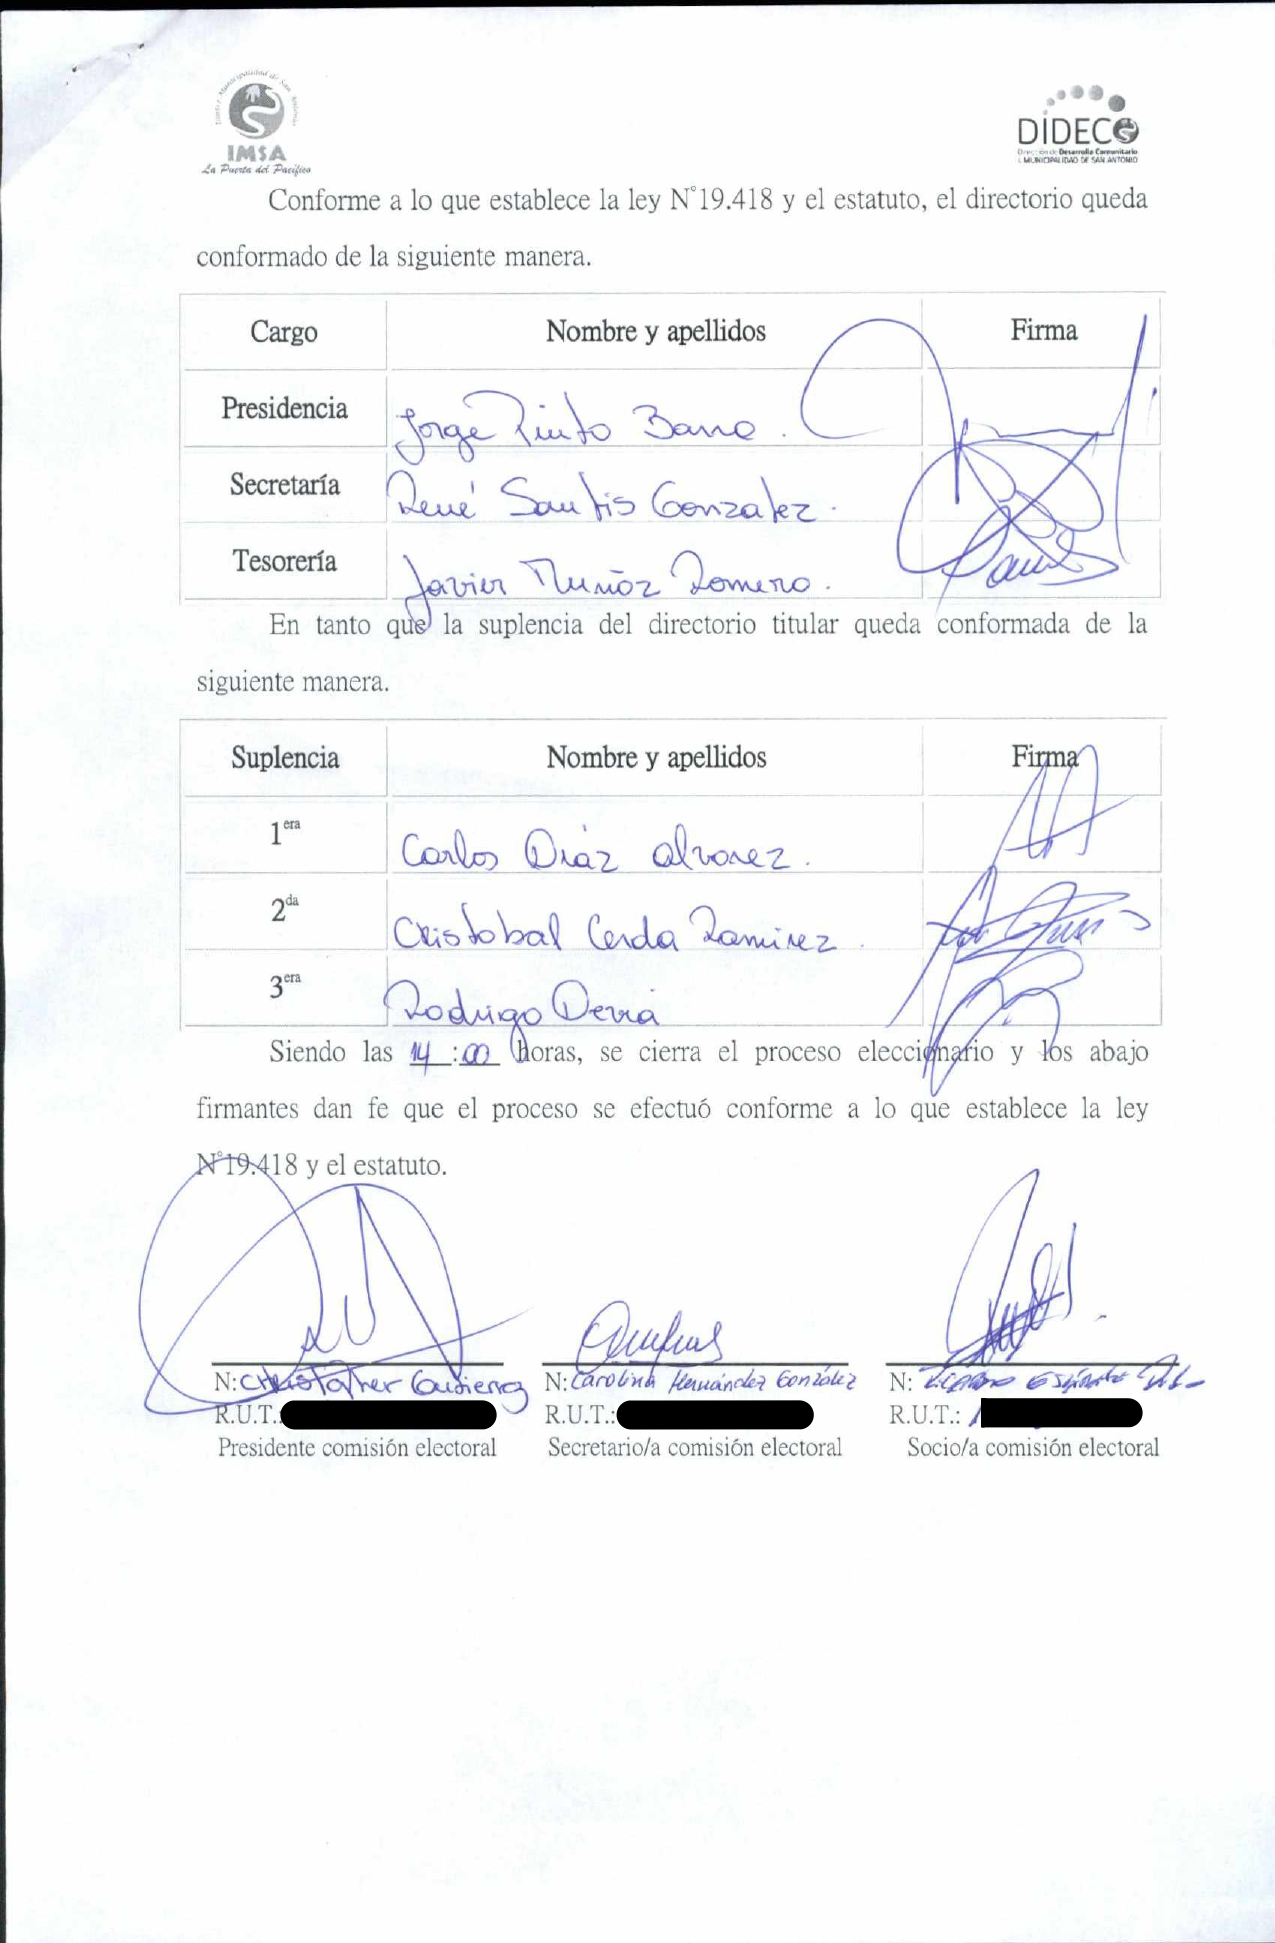 Ilustre Municipalidad de San Antonio
IMSA
La Puerta del Pacífico
DIDECO
Dirección de Desarrollo Comunitario
I. MUNICIPALIDAD DE SAN ANTONIO
Conforme a lo que establece la ley N°19.418 y el estatuto, el directorio queda
conformado de la siguiente manera.
Cargo Nombre y apellidos Firma
Presidencia Jorge Pinto
Secretaría René Santis Gonzalez.
Tesorería Javier Muñoz Romero.
En tanto que la suplencia del directorio titular queda conformada de la
siguiente manera.
Suplencia Nombre y apellidos Firma
1era Carlos Diaz alvarez.
2da Cristobal Cerda Ramirez.
3era Rodrigo
Siendo las 14:00 horas, se cierra el proceso eleccionario y los abajo
firmantes dan fe que el proceso se efectuó conforme a lo que establece la ley
N°19.418 y el estatuto.
N: Christopher Gutierrez N: Carolina Hernández González N:
R.U.T.: R.U.T.: R.U.T.:
Presidente comisión electoral Secretario/a comisión electoral Socio/a comisión electoral